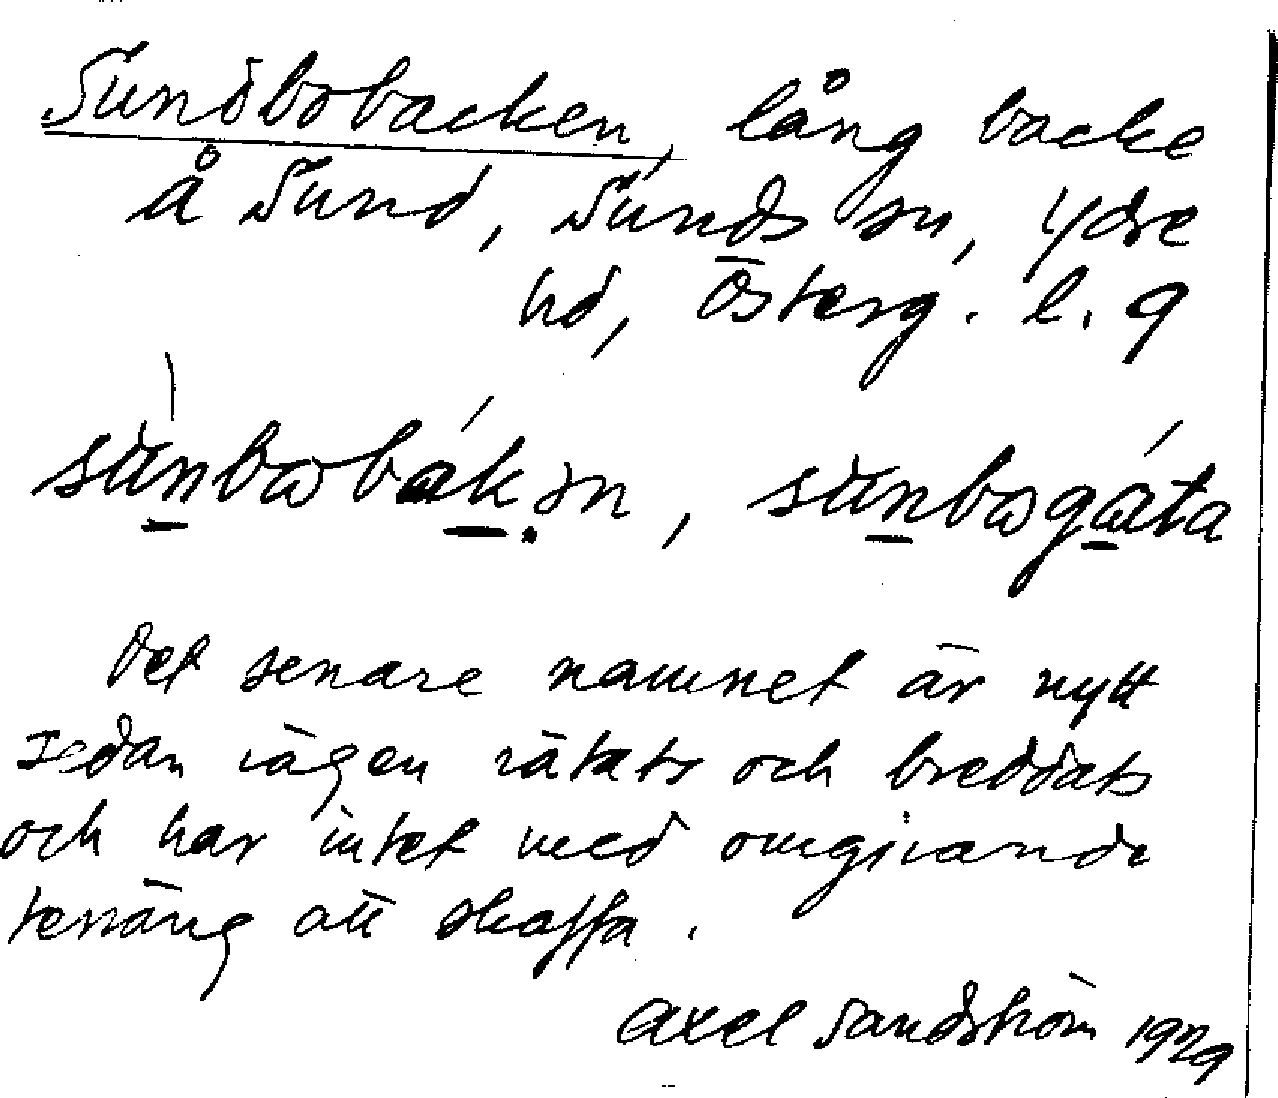 Sundbobacken, lång backe
å Sund, Sunds sn, Ydre
hd, Österg. l. 9
sùnbωbák.ən, sùnbωgáta
Det senare namnet är nytt
sedan vägen rätats och breddats
och har intet med omgivande
terräng att skaffa.
Axel Sandström 1929